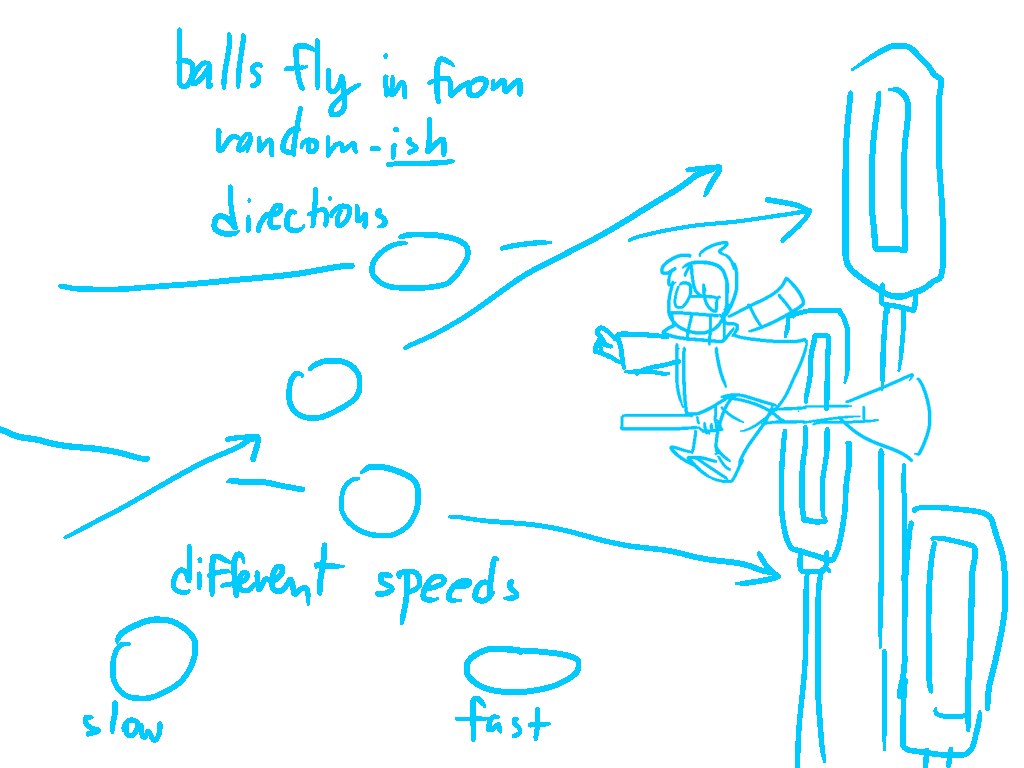 balls fly in from
random-ish
directions
different speeds
slow
fast